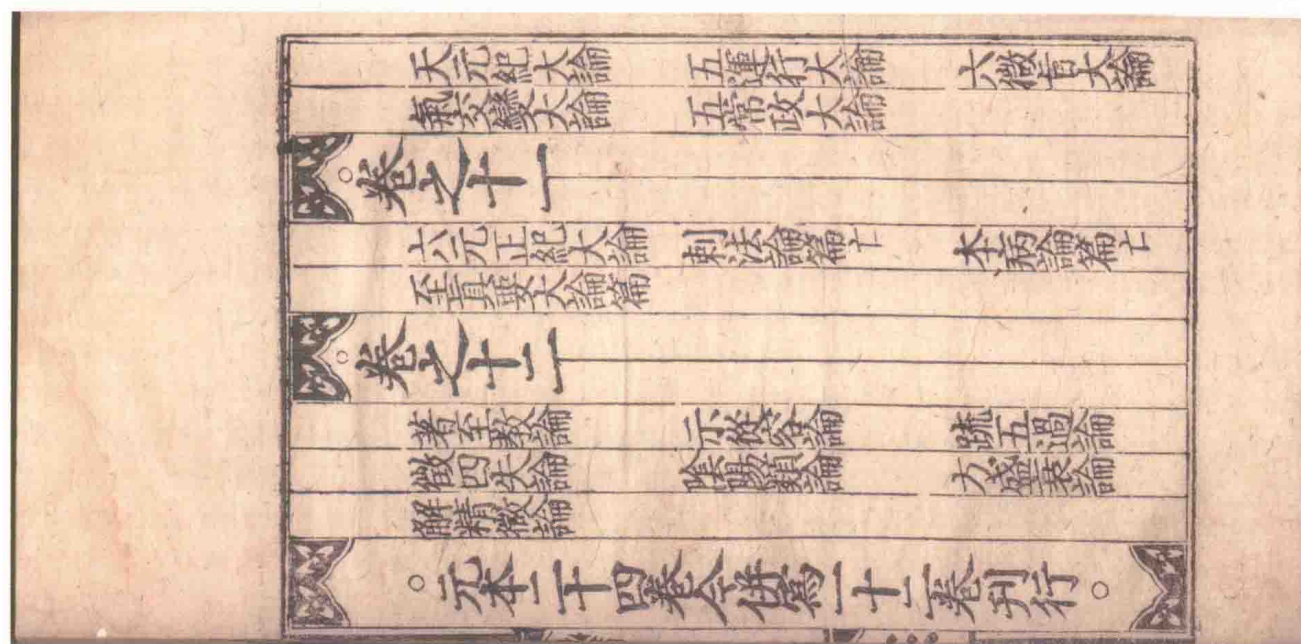 天元紀大論 五運行大論 六微旨大論
氣交變大論 五常政大論
○卷之十一
六元正紀大論 刺法論篇亡 本病論篇亡
至眞要大論篇
○卷之十二
著至教論 示從容論 䟽五過論
徵四失論 陰陽類論 方盛衰論
解精微論
○元本二十四卷今併爲一十二卷刊行○